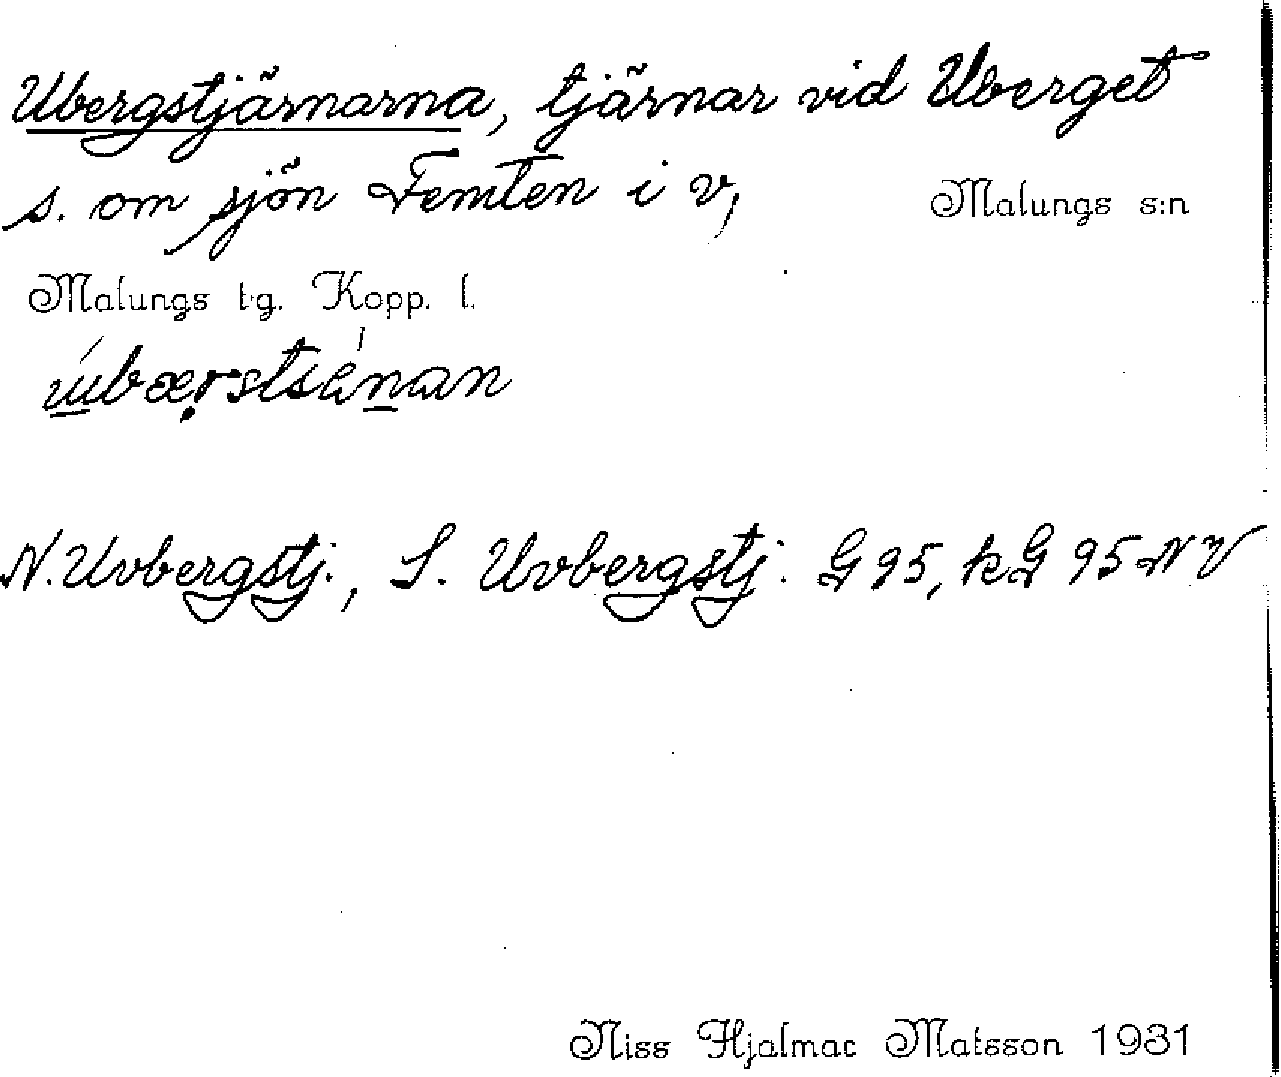 Ubergstjärnarna, tjärnar vid Uberget
s. om sjön Femten i v,
Malungs s:n
Malungs tg. Kopp. l.
N. Uvbergstj., S. Uvbergstj. G 95, kG 95 NV
Niss Hjalmar Matsson 1931